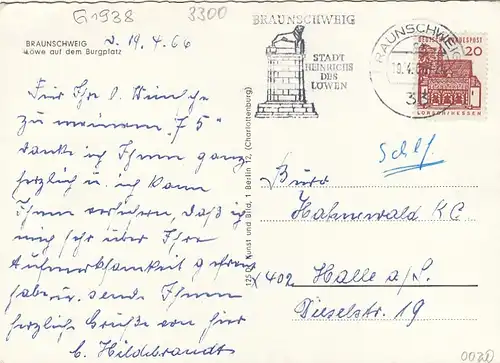 G1938
3300
BRAUNSCHWEIG
Löwe auf dem Burgplatz
d. 19.4.66
Für Ihre l. Wünsche
zu meinem "75"
danke ich Ihnen ganz
herzlich u. ich kann
Ihnen versichern, daß ich
mich sehr über Ihre
Aufmerksamkeit gefreut
habe u. sende Ihnen
herzliche Grüße von hier
C. Hildebrandt
125 Kunst und Bild, 1 Berlin 12, (Charlottenburg)
BRAUNSCHWEIG
STADT
HEINRICHS
DES
LÖWEN
BRAUNSCHWEIG
19.4.
DEUTSCHE BUNDESPOST
20
LORSCH/HESSEN
Büro
Hahnewald KG
X 402 Halle a/S.
Dieselstr. 19
0020